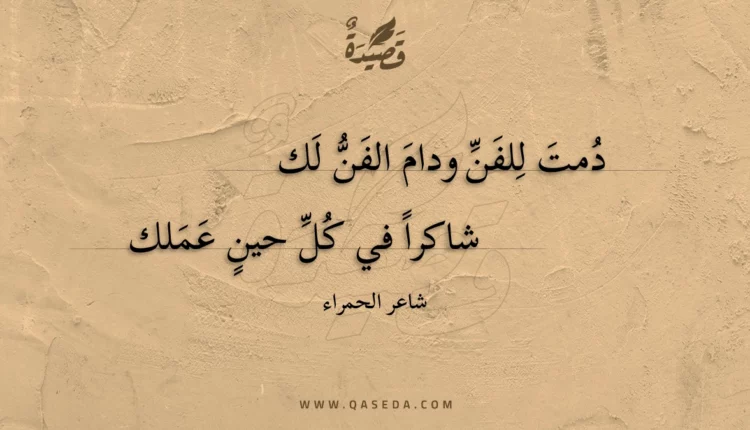 قَصِيدَةٌ
دُمتَ لِلفَنِّ ودامَ الفَنُّ لَك
شاكراً في كُلِّ حينٍ عَمَلك
شاعر الحمراء
WWW.QASEDA.COM